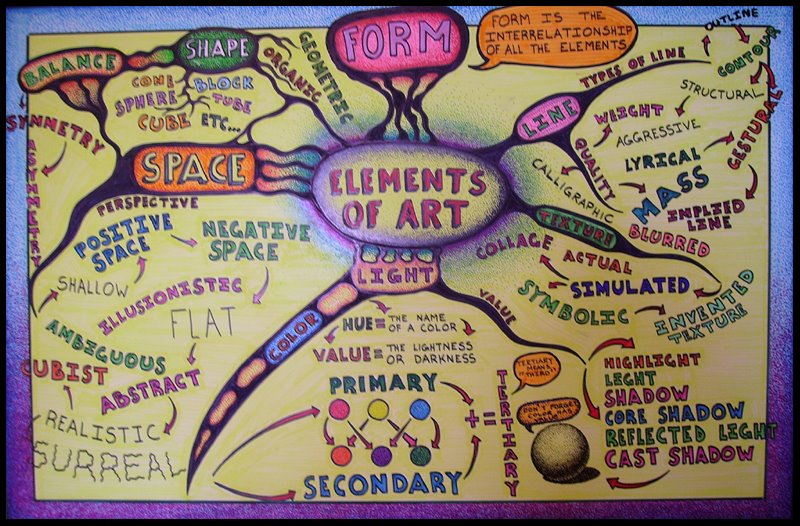 ELEMENTS
OF ART
FORM
FORM IS THE
INTERRELATIONSHIP
OF ALL THE ELEMENTS
BALANCE
SYMMETRY
ASYMMETRY
SHAPE
GEOMETRIC
ORGANIC
CONE
BLOCK
SPHERE
TUBE
CUBE ETC...
SPACE
PERSPECTIVE
POSITIVE
SPACE
NEGATIVE
SPACE
SHALLOW
ILLUSIONISTIC
FLAT
AMBIGUOUS
CUBIST
ABSTRACT
REALISTIC
SURREAL
LINE
TYPES OF LINE
OUTLINE
CONTOUR
STRUCTURAL
GESTURAL
IMPLIED
LINE
QUALITY
WEIGHT
AGGRESSIVE
LYRICAL
MASS
CALLIGRAPHIC
BLURRED
TEXTURE
COLLAGE
ACTUAL
SIMULATED
SYMBOLIC
INVENTED
TEXTURE
LIGHT
COLOR
HUE= THE NAME
OF A COLOR
VALUE= THE LIGHTNESS
OR DARKNESS
PRIMARY
SECONDARY
+ =
TERTIARY
TERTIARY
MEANS
"THIRD"
VALUE
HIGHLIGHT
LIGHT
SHADOW
CORE SHADOW
REFLECTED LIGHT
CAST SHADOW
DON'T FORGET
COLOR HAS
VALUE